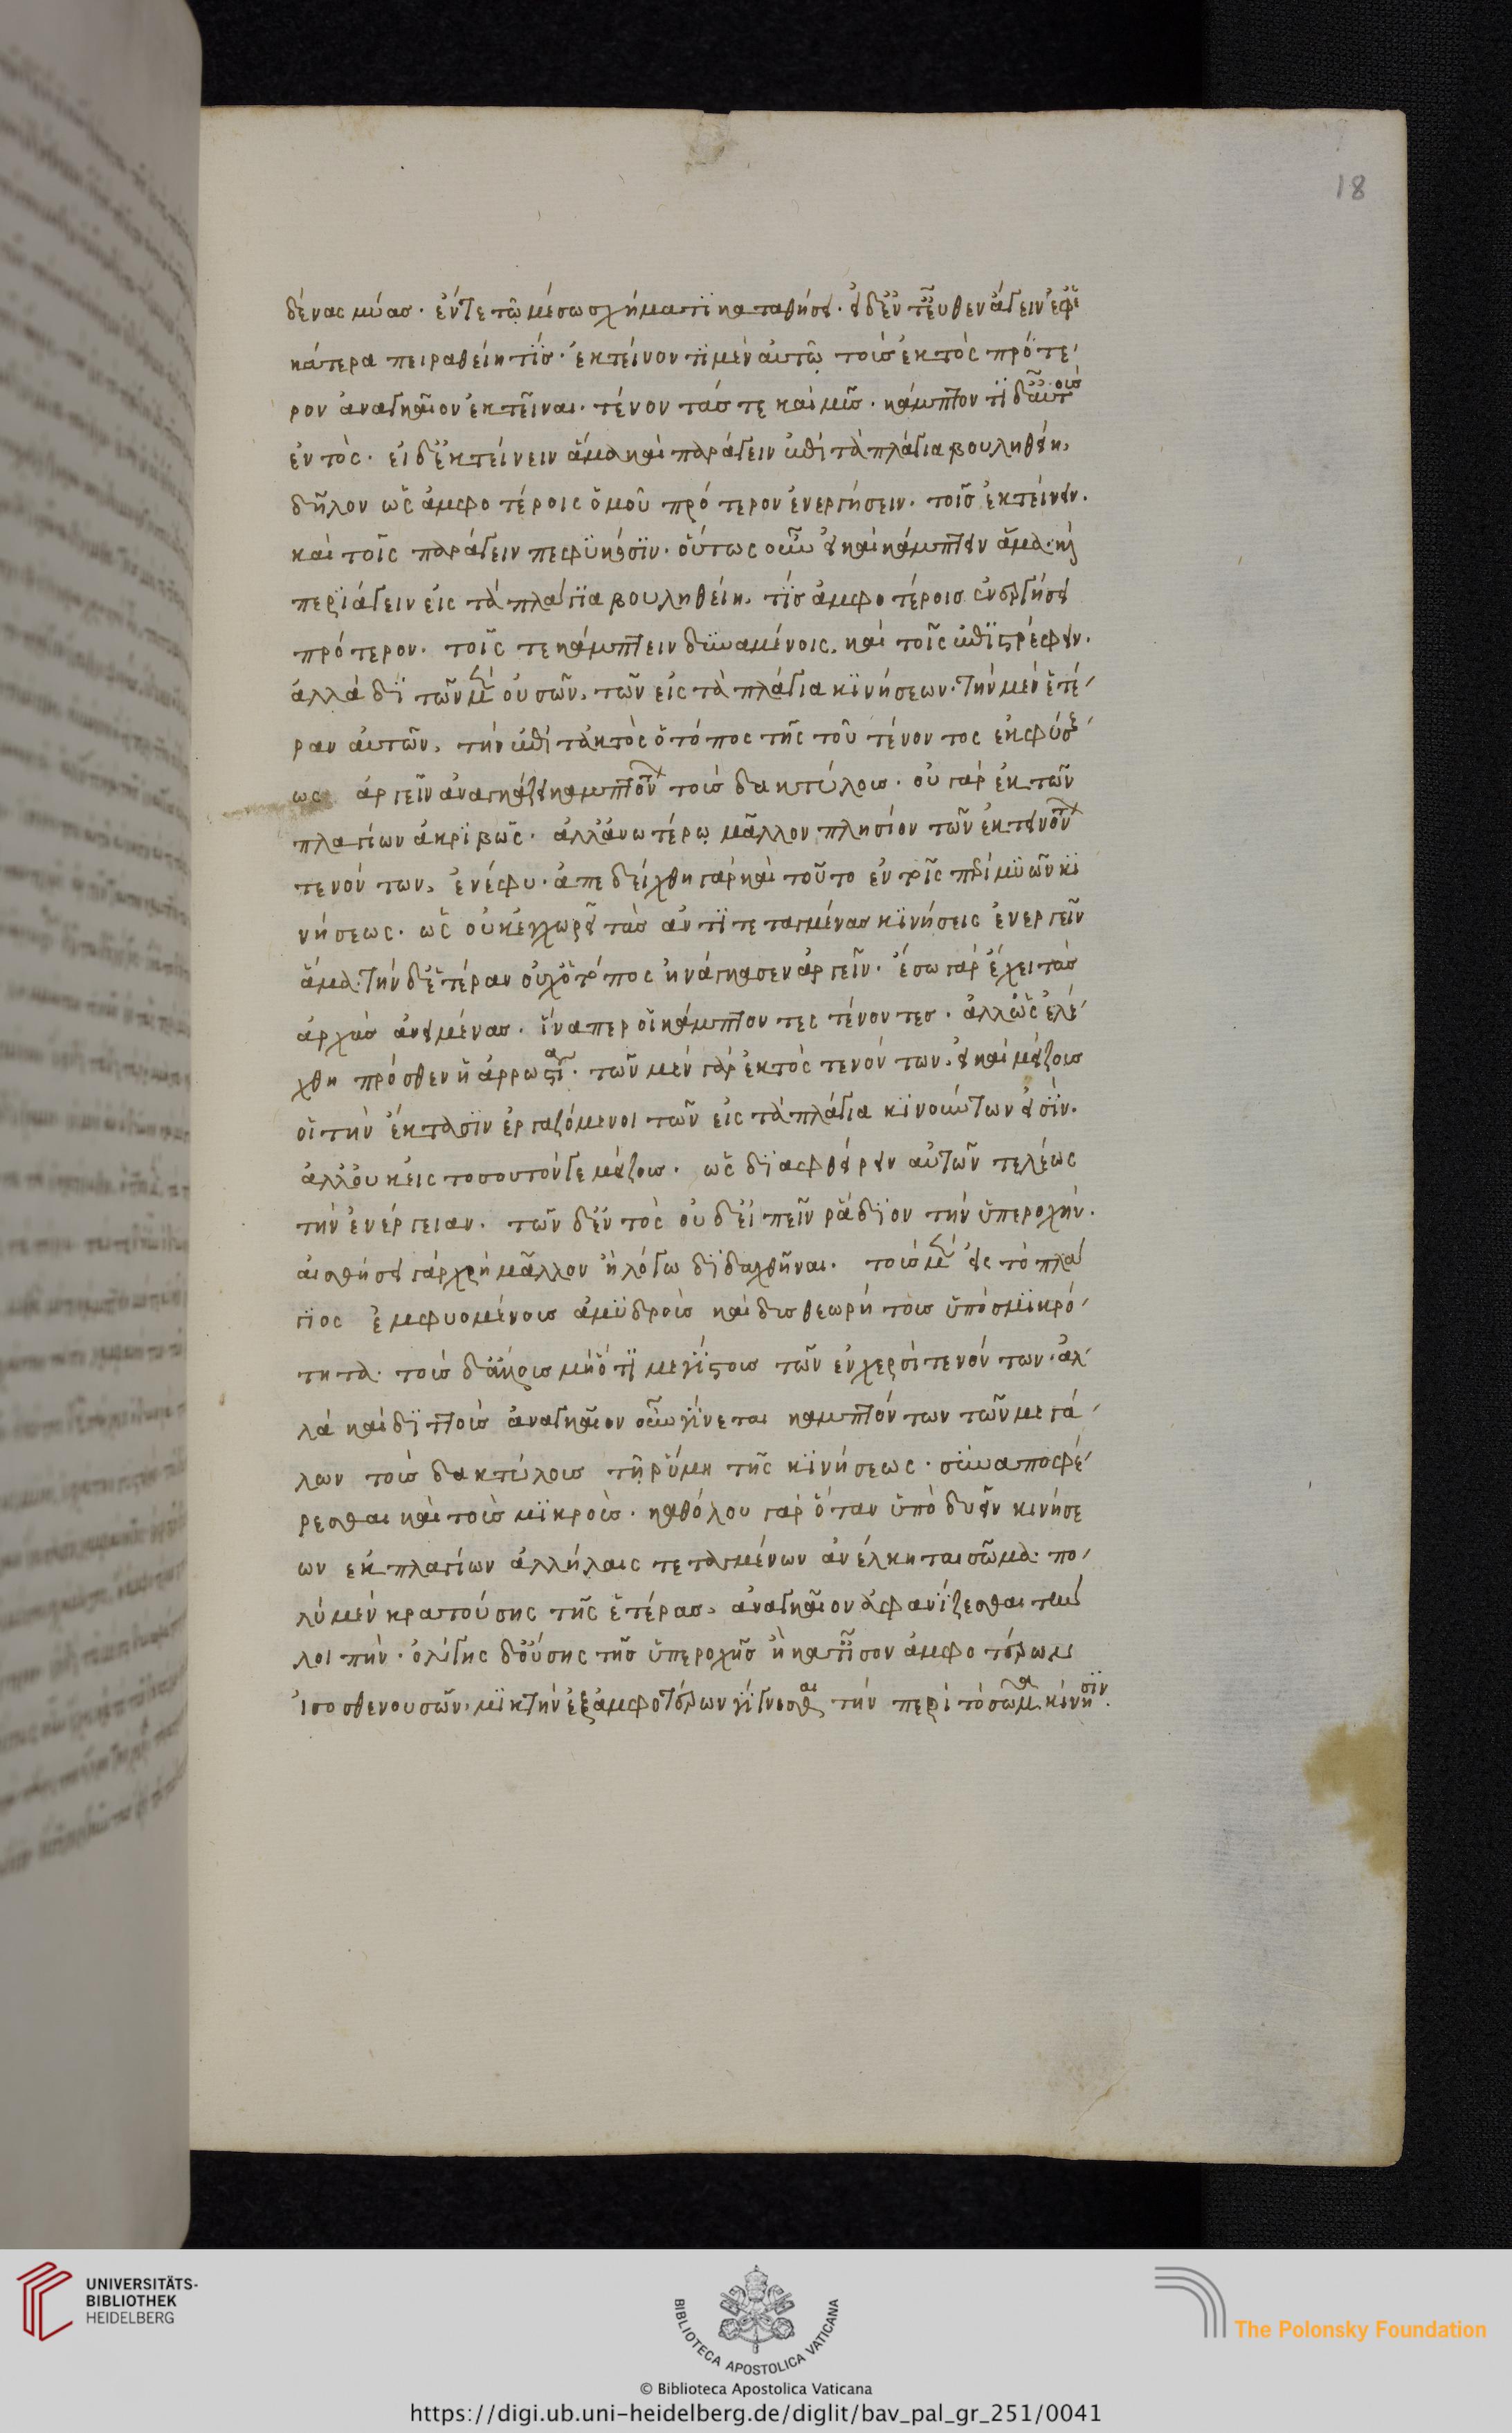 18
δένας μύας. ἔν γε τῷ μέσῳ σχήματι καταθήσει. εἰ δ' ἐντεῦθεν ἄγειν ἐφ' ἑ
κάτερα πειραθείη τίς. ἐκτείνοντι μὲν αὐτῷ τοὺς ἐκτὸς πρότε
ρον ἀναγκαῖον ἐκτεῖναι. τένοντάς τε καὶ μῦς. κάμπτοντι δ' αὖ τοὺς
ἐντός. εἰ δ' ἐκτείνειν ἅμα καὶ παράγειν ἐπὶ τὰ πλάγια βουληθείη,
δῆλον ὡς ἀμφοτέροις ὁμοῦ πρότερον ἐνεργήσειν. τοῖς ἐκτείνειν.
καὶ τοῖς παράγειν πεφυκόσιν. οὕτως οὖν εἰ καὶ κάμπτειν ἅμα καὶ
περιάγειν εἰς τὰ πλάγια βουληθείη. τίς ἀμφοτέροις ἐνεργήσει
πρότερον. τοῖς τε κάμπτειν δυναμένοις. καὶ τοῖς ἐπιστρέφειν.
ἀλλὰ δὴ τῶν μὲν οὐσῶν, τῶν εἰς τὰ πλάγια κινήσεων. τὴν μὲν ἑτέ
ραν αὐτῶν, τὴν ἐπὶ τἀκτὸς ὁ τόπος τῆς τοῦ τένοντος ἐκφύσε
ως ἀργεῖν ἀναγκάζει καμπτόντων τοὺς δακτύλους. οὐ γὰρ ἐκ τῶν
πλαγίων ἀκριβῶς. ἀλλ' ἀνωτέρω μᾶλλον πλησίον τῶν ἐκτεινόντων
τενόντων, ἐνέφυ. ἀπεδείχθη γὰρ καὶ τοῦτο ἐν τοῖς περὶ μυῶν κι
νήσεως. ὡς οὐκ ἐγχωρεῖ τὰς ἀντιτεταγμένας κινήσεις ἐνεργεῖν
ἅμα. τὴν δ' ἑτέραν οὐχ ὁ τρόπος ἠνάγκασεν ἀργεῖν. ἔσω γὰρ ἔχει τὰς
ἀρχὰς ἀνειμένας. ἵναπερ οἱ κάμπτοντες τένοντες. ἀλλ' ὡς ἐλέ
χθη πρόσθεν ἡ ἀρρωστία. τῶν μὲν γὰρ ἐκτὸς τενόντων, εἰ καὶ μείζους
οἱ τὴν ἔκτασιν ἐργαζόμενοι τῶν εἰς τὰ πλάγια κινούντων εἰσίν.
ἀλλ' οὐκ εἰς τοσοῦτόν γε μείζους. ὡς διαφθείρειν αὐτῶν τελέως
τὴν ἐνέργειαν. τῶν δ' ἐντὸς οὐδ' εἰπεῖν ῥάδιον τὴν ὑπεροχήν.
αἰσθήσει γὰρ χρὴ μᾶλλον ἢ λόγῳ διδαχθῆναι. τοὺς μὲν εἰς τὸ πλά
γιος ἐμφυομένους ἀμυδροὺς καὶ δυσθεωρήτους ὑπὸ σμικρό
τητα. τοὺς δ' ἄκρους μὴ ὅτι μεγίστους τῶν ἐν χερσὶ τενόντων. ἀλ
λὰ καὶ διττοὺς ἀναγκαῖον οὖν γίνεται καμπτόντων τῶν μεγά
λων τοὺς δακτύλους τῇ ῥύμῃ τῆς κινήσεως. συναποφέ
ρεσθαι καὶ τοὺς μικρούς. καθόλου γὰρ ὅταν ὑπὸ δυεῖν κινήσε
ων ἐκ πλαγίων ἀλλήλαις τεταγμένων ἀνέλκηται σῶμα. πο
λὺ μὲν κρατούσης τῆς ἑτέρας, ἀναγκαῖον ἀφανίζεσθαι τὴν
λοιπήν. ὀλίγης δ' οὔσης τῆς ὑπεροχῆς ἢ κατ' ἴσον ἀμφοτέρων
ἰσοσθενουσῶν. μικτὴν ἐξ ἀμφοτέρων γίγνεσθαι τὴν περὶ τὸ σῶμα κίνησιν.
UNIVERSITÄTS-
BIBLIOTHEK
HEIDELBERG
BIBLIOTECA APOSTOLICA VATICANA
© Biblioteca Apostolica Vaticana
The Polonsky Foundation
https://digi.ub.uni-heidelberg.de/diglit/bav_pal_gr_251/0041